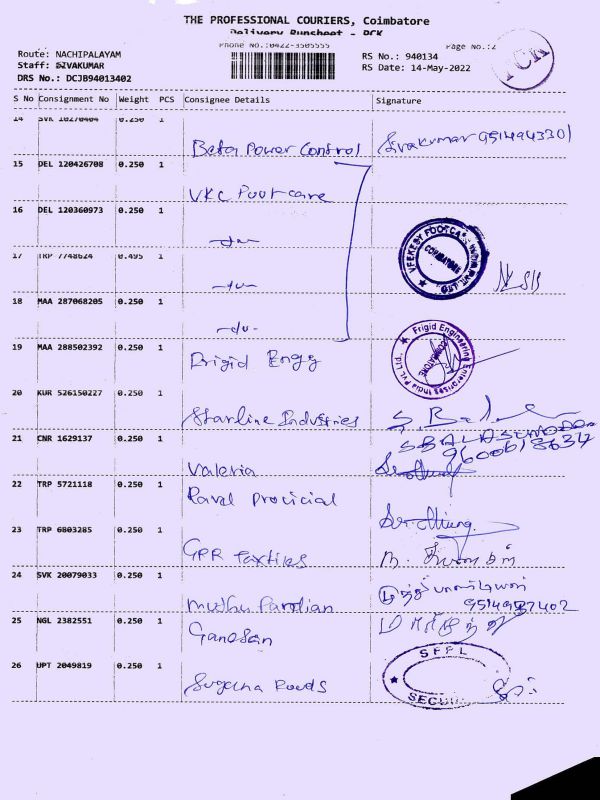 THE PROFESSIONAL COURIERS, Coimbatore
Delivery Runsheet - PCK
Phone No.:0422-3505555
Page No.:2
PCK
Route: NACHIPALAYAM
RS No.: 940134
Staff: SIVAKUMAR
RS Date: 14-May-2022
DRS No.: DCJB94013402
S No Consignment No Weight PCS Consignee Details Signature
14 SVK 10270404 0.250 1
Beta Power Control Sivakumar 9514943301
15 DEL 120426708 0.250 1
VKC Footcare
16 DEL 120360973 0.250 1
-du-
VEEKESY FOOTCARE (INDIA) PVT. LTD.
COIMBATORE
17 TRP 7748624 0.495 1
-du-
18 MAA 287068205 0.250 1
-du-
19 MAA 288502392 0.250 1
Frigid Engg
Frigid Engineering Enterprises India Pvt. Ltd.,
COIMBATORE
20 KUR 526150227 0.250 1
Starline Industries
21 CNR 1629137 0.250 1
Valeria
22 TRP 5721118 0.250 1
Raval
23 TRP 6803285 0.250 1
GPR
24 SVK 20079033 0.250 1
Muthu Pandian
9514937402
25 NGL 2382551 0.250 1
Ganesan
26 UPT 2049819 0.250 1
Suguna Foods
SFPL
SECURITY